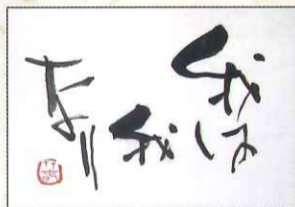 我は
我
なり